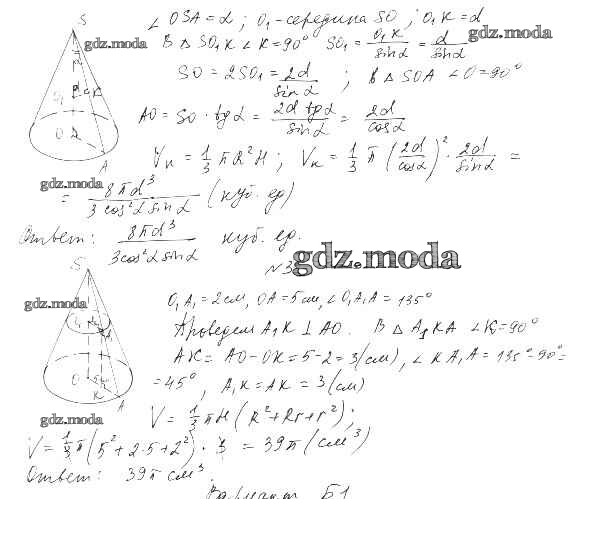 ∠OSA = α ; O₁ - середина SO ; O₁K = d
В △ SO₁K ∠K = 90° SO₁ = O₁K / sin α = d / sin α
gdz.moda
gdz.moda
SO = 2SO₁ = 2d / sin α ; В △ SOA ∠O = 90°
AO = SO · tg α = 2d tg α / sin α = 2d / cos α
Vк = 1/3 πR²H ; Vк = 1/3 π (2d / cos α)² · 2d / sin α =
gdz.moda
= 8πd³ / 3 cos²α sin α (куб. ед)
Ответ: 8πd³ / 3cos²α sin α куб. ед.
№3
gdz.moda
gdz.moda
O₁A₁ = 2см, OA = 5см, ∠O₁A₁A = 135°
Проведем A₁K ⊥ AO. В △ A₁KA ∠K = 90°
AK = AO - OK = 5 - 2 = 3(см), ∠KA₁A = 135° - 90° =
= 45°, A₁K = AK = 3(см)
gdz.moda
V = 1/3 πH (R² + Rr + r²);
V = 1/3 π(5² + 2·5 + 2²) · 3 = 39π (см³)
Ответ: 39π см³.
Вариант Б1
S
O₁
K
O
A
S
O₁
O
K
A